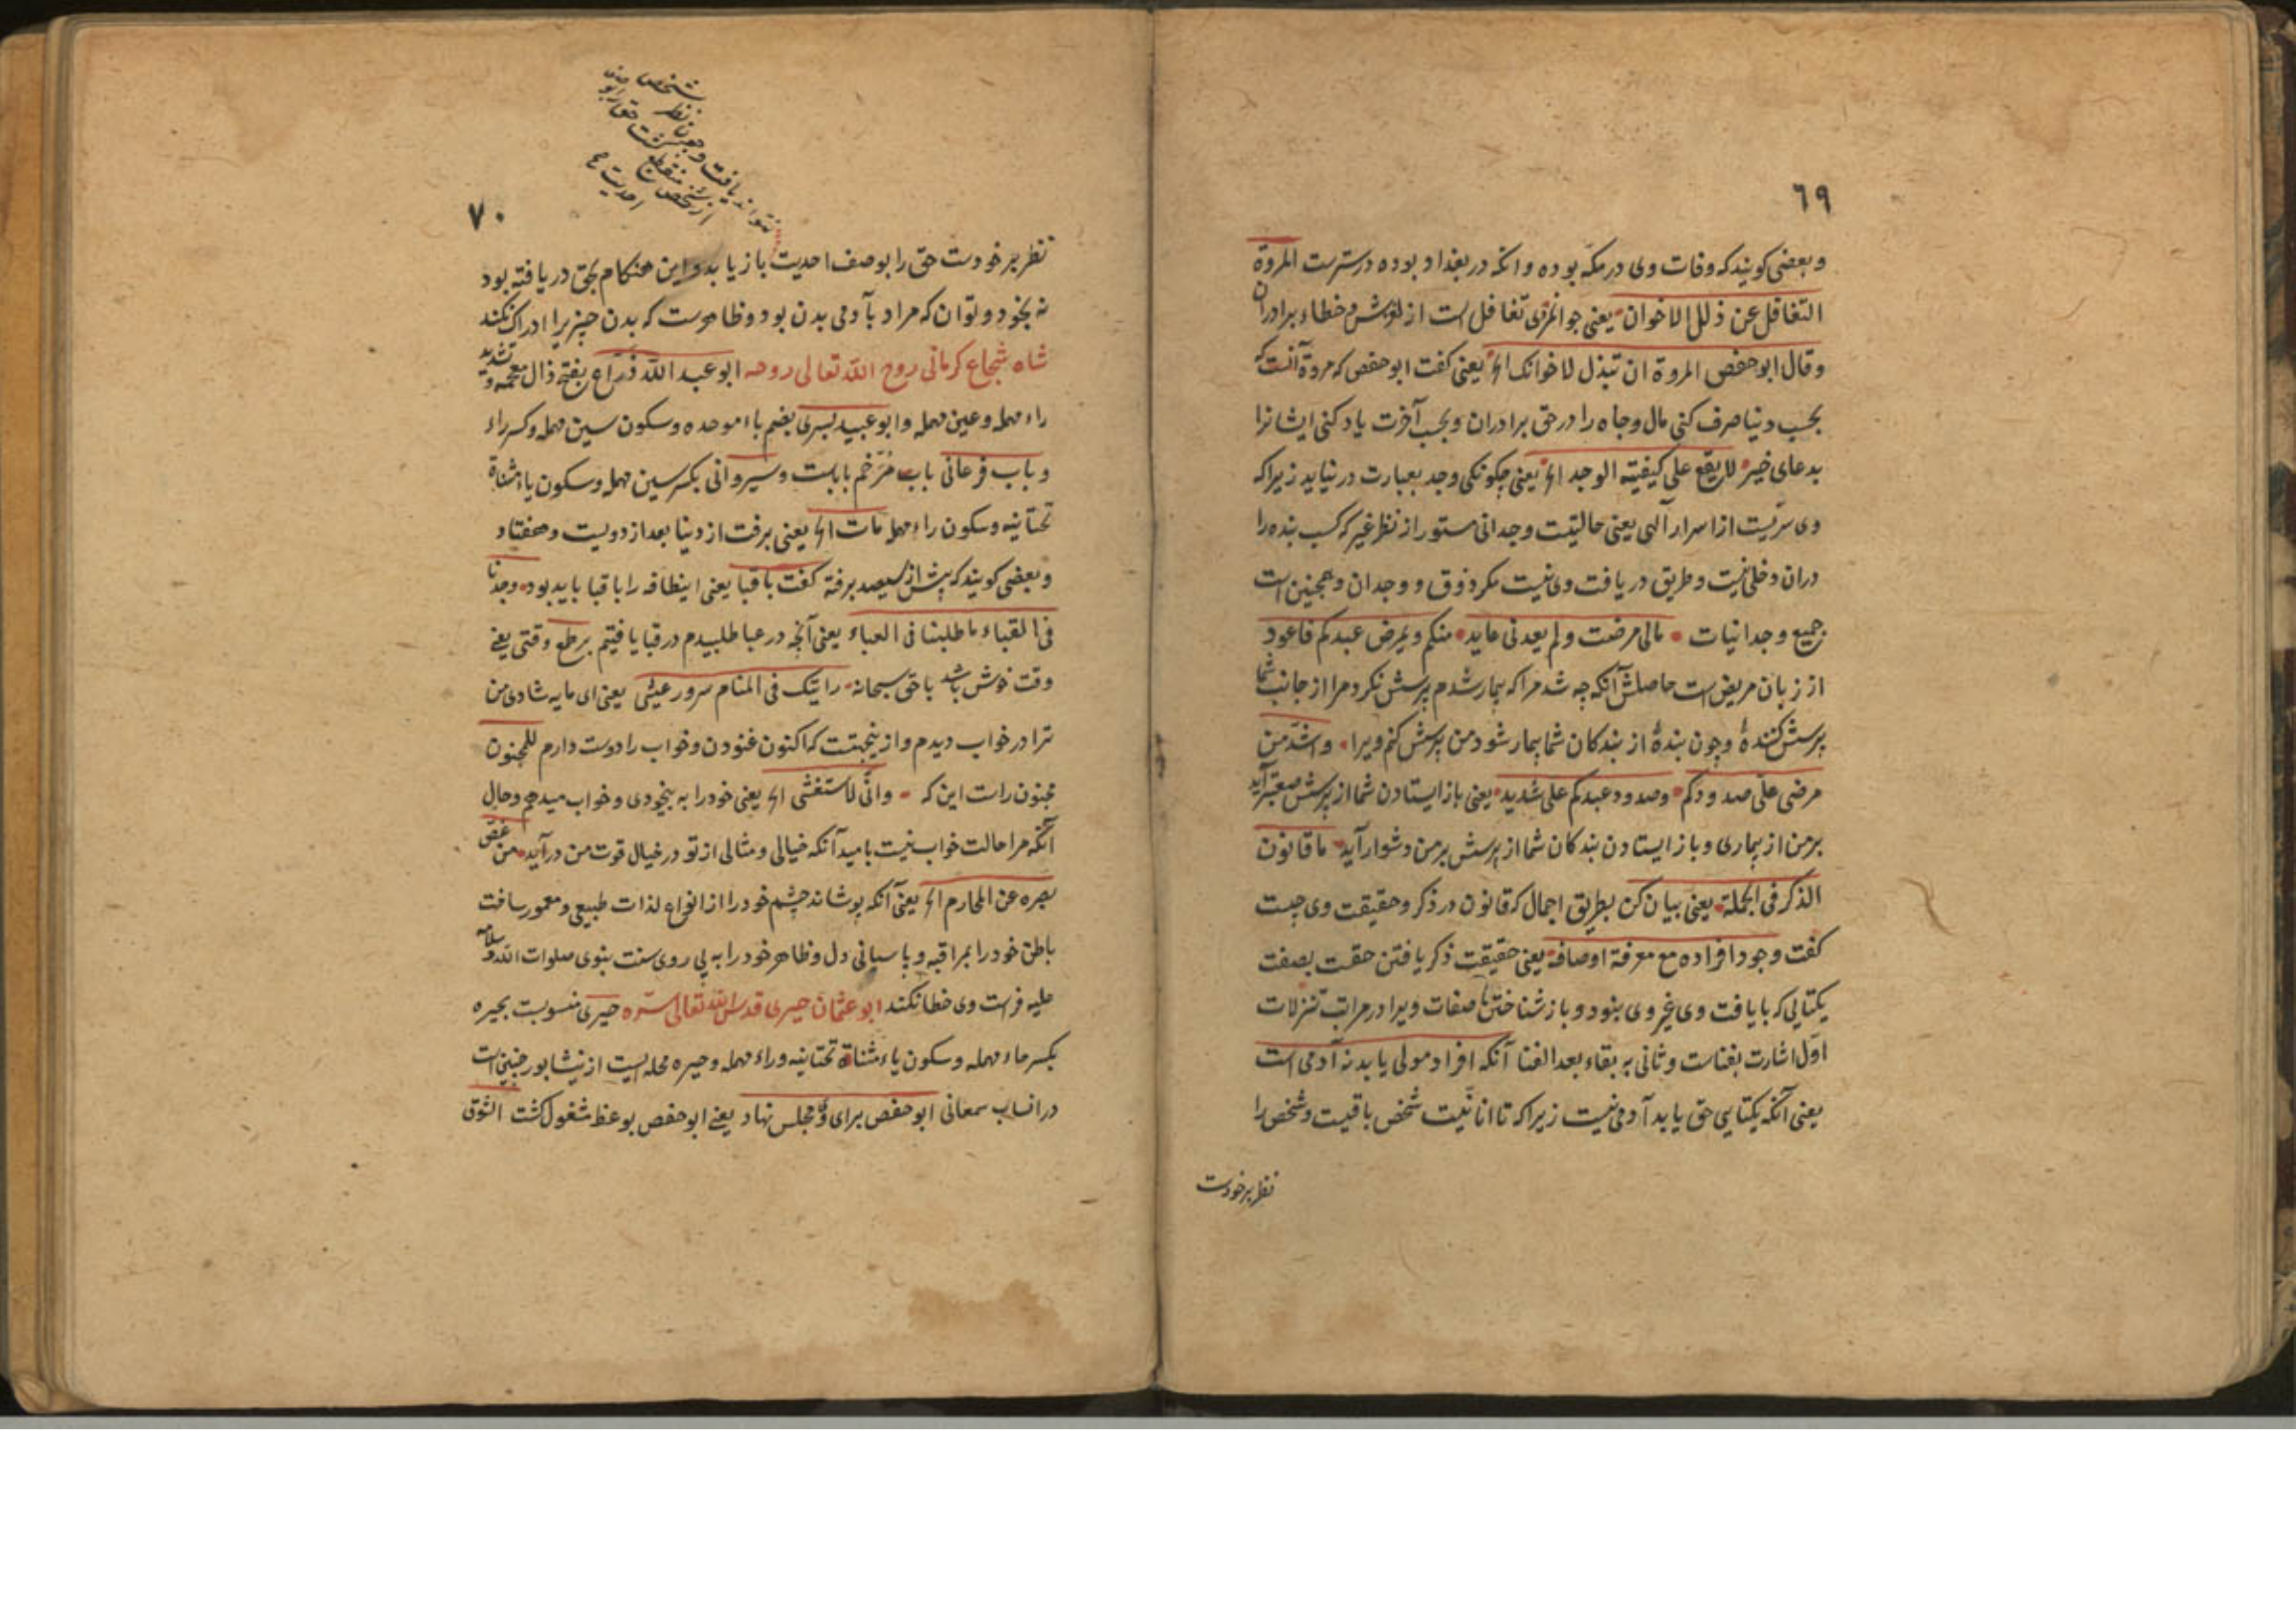 ٦٩
وبعضی کویند که وفات وی در مکه بوده وانکه در بغداد بوده درسترست المروة
التغافل عن ذلل الاخوان یعنی جوانمردی تغافل است از لغزش و خطاء برادران
وقال ابوحفص المروة ان تبذل لاخوانک الخ یعنی کفت ابوحفص که مروة آنست که
بحسب دنیا صرف کنی مال وجاه را در حق برادران وبحسب آخرت یاد کنی ایشانرا
بدعای خیر لا یقع علی کیفیته الوجد الخ یعنی چکونکی وجد بعبارت در نیاید زیراکه
وی سریست از اسرار آلهی یعنی حالیتست وجدانی مستور از نظر غیر که کسب بنده را
دران دخلی نیست وطریق دریافت وی نیست مکر ذوق و وجدان وهمچنین است
جمیع وجدانیات مالی مرضت ولم یعدنی عاید منکم ویمرض عبدکم فاعود
از زبان مریض است حاصلش آنکه چه شد مرا که بیمار شدم پرسش نکرد مرا از جانب شما
پرسش کنندهٔ وچون بندهٔ از بندکان شما بیمار شود من پرسش کنم ویرا واشد من
مرضی علی صدودکم وصدود عبدکم علی شدید یعنی باز ایستادن شما از پرسش صعبتر آید
برمن از بیماری وباز ایستادن بندکان شما از پرسش برمن دشوار آید ما قانون
الذکر فی الجملة یعنی بیان کن بطریق اجمال که قانون در ذکر وحقیقت وی چیست
کفت وجود افراده مع معرفة اوصافه یعنی حقیقت ذکر یافتن حقست بصفت
یکتایی که با یافت وی غیر وی بنود وباز شناختن با صفات ویرا در مراتب تنزلات
اول اشارت بفناست وثانی به بقاء بعد الفنا آنکه افراد مولی یابد نه آدمی است
یعنی آنکه یکتایی حق یابد آدمی نیست زیراکه تا انانیت شخص باقیست وشخص را
نظر برخودست
٧٠
شخص
نظر
نتواند یافت وچون
برخاست حق را بو
منقطع
از شخص
احدیت
نظر برخودست حق را بوصف احدیت باز یابد واین هنکام بحق دریافته بود
نه بخود و توان که مراد بآدمی بدن بود وظاهرست که بدن چیزیرا ادراک نکند
شاه شجاع کرمانی روح الله تعالی روحه ابوعبدالله ذراع بفتح ذال معجمه و تشدید
راء مهمله وعین مهمله وابوعبید بسری بضم باء موحده وسکون سین مهمله وکسر راء
وباب فرغانی باب مرخم بابست وسیروانی بکسر سین مهمله وسکون یاء مثناة
تحتانیه وسکون راء مهمله مات الخ یعنی برفت از دنیا بعد از دویست وهفتاد
وبعضی کویند که پیش از سیصد برفته کفت باقبا یعنی اینطاقه را باقبا باید بود وجدنا
فی القباء ما طلبنا فی العباء یعنی آنچه در عبا طلبیدم در قبا یافتیم بر طمع وقتی یعنی
وقت خوش باشد با حق سبحانه رایتک فی المنام سرور عینی یعنی ای مایه شادی من
ترا در خواب دیدم و ازینجهتست که اکنون غنودن وخواب را دوست دارم للمجنون
مجنون راست این که وانی لاستغشی الخ یعنی خود را به بیخودی وخواب میدهم وحال
آنکه مرا حالت خواب نیست بامید آنکه خیالی ومثالی از تو در خیال قوت من در آید من غض
بصره عن المحارم الخ یعنی آنکه بپوشاند چشم خود را از انواع لذات طبیعی ومعمور ساخت
باطن خود را بمراقبه وپاسبانی دل وظاهر خود را به پی روی سنت بنوی صلوات الله وسلامه
علیه فراست وی خطا نکند ابوعثمان حیری قدس الله تعالی سره حیری منسوبست بحیره
بکسر حاء مهمله وسکون یاء مثناة تحتانیه وراء مهمله وحیره محله ایست از نیشابور چنین است
در انساب سمعانی ابوحفص برای وی مجلس نهاد یعنی ابوحفص بوعظ مشغول کشت الشوق